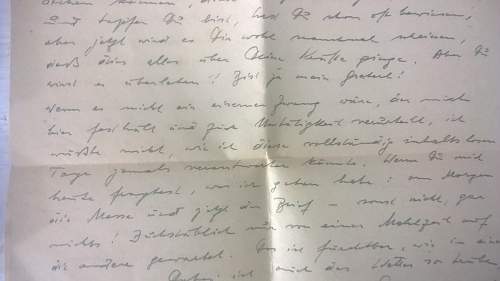 stehen können, 
und tapfer Du bist, hast Du schon oft bewiesen,
aber jetzt wird es Dir wohl manchmal scheinen,
daß dies alles über Deine Kräfte ginge. Aber Du
wirst es überleben! Bist ja mein Peterl!
Wenn es nicht ein eiserner Zwang wäre, der mich
hier festhält und zur Untätigkeit verurteilt, ich
wüßte nicht, wie ich diese vollständig inhaltslosen
Tage jemals verantworten könnte. Wenn Du mich
heute fragtest, was ich getan habe: am Morgen
die Messe und jetzt der Brief – sonst nicht, gar
nichts! Buchstäblich nur von einer Mahlzeit auf
die andere gewartet. Das ist furchtbar, wie in einer
ich mich das Wetter so